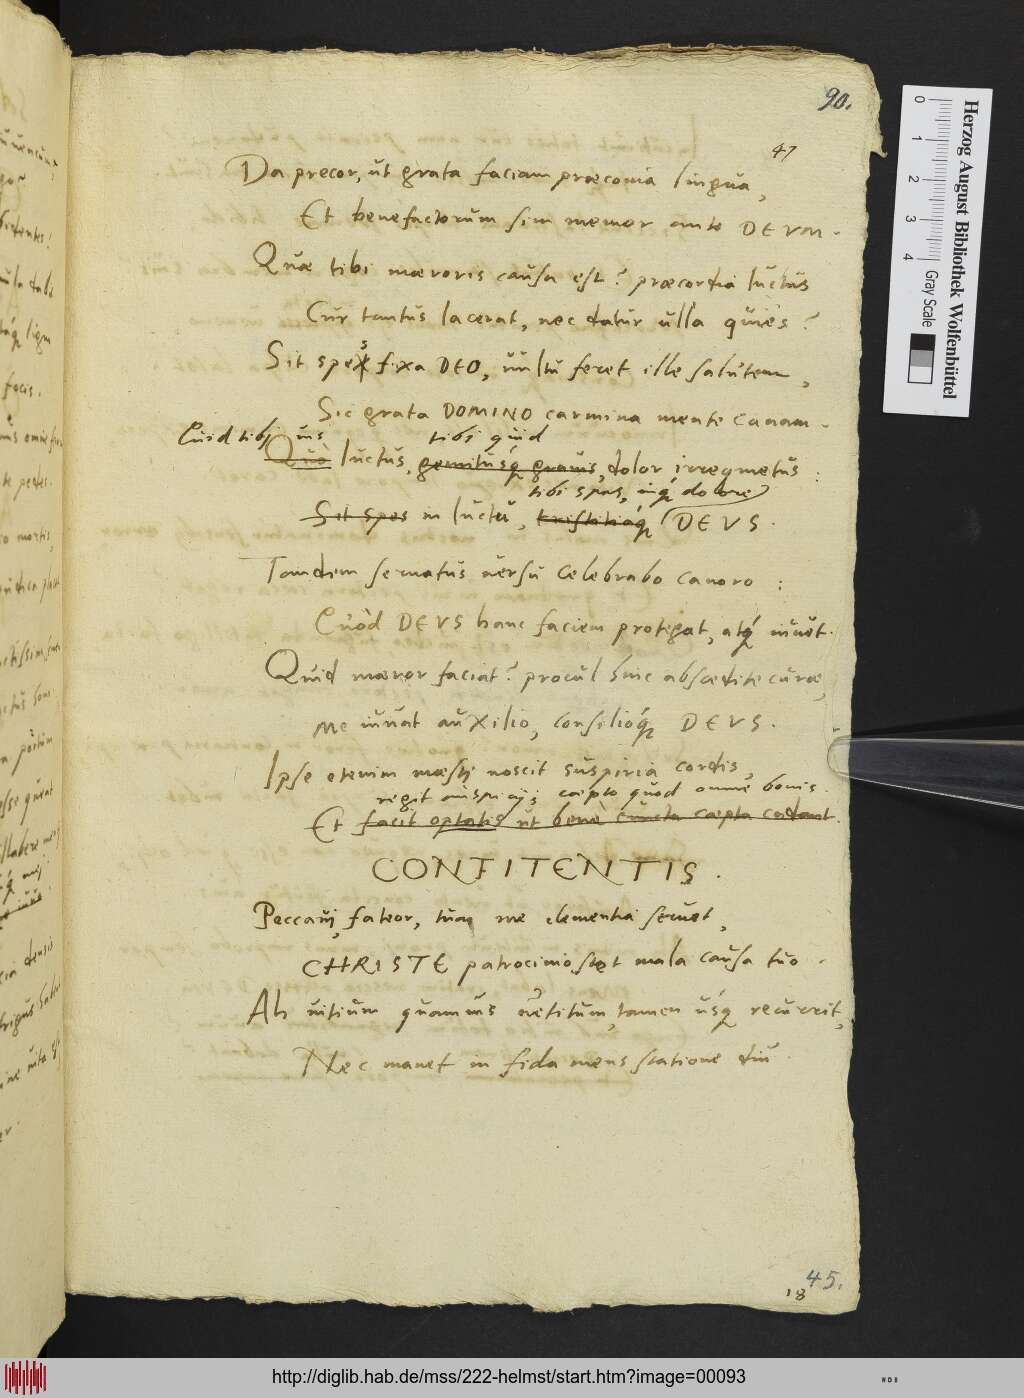 90.
47
Da precor, ut grata faciam præconia lingua,
Et benefactorum sim memor ante DEUM.
Quæ tibi mæroris causa est? præcordia luctus
Cur tantus lacerat, nec datur ulla quies?
Sit spes fixa DEO, vultu feret ille salutem,
Sic grata DOMINO carmina mente canam.
Quid tibi vis tibi quid
Quo luctus, gemitusq́ grauis, dolor irrequietus:
tibi spes, inq́ dolore
Sit spes in luctu, tristitiaq́ DEVS.
Tandem seruatus versu celebrabo canoro:
Quòd DEVS hanc faciem protegat, atq́ iuuet.
Quid mæror faciat? procul hinc abscedite curæ,
Me iuuat auxilio, consilioq́ DEVS.
Ipse etenim mæstj noscit suspiria cordis,
regit auspicijs cæpto quod omine bonis.
Et facit optatis ut bene cuncta cæpta cadant.
CONFITENTIS.
Peccavj, fateor, tua me clementia seruet,
CHRISTE patrocinio stet mala causa tuo.
Ah vitium quamuis vetitum, tamen usq́ recurrit,
Nec manet in fida mens statione diu.
45.
18
Herzog August Bibliothek Wolfenbüttel
0 1 2 3 4 Gray Scale
http://diglib.hab.de/mss/222-helmst/start.htm?image=00093